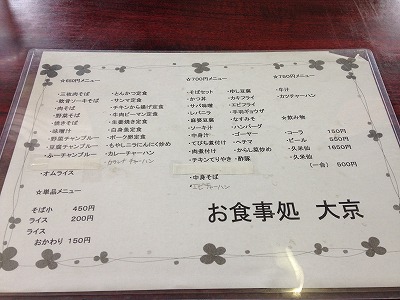 ☆650円メニュー
・三枚肉そば
・軟骨ソーキそば
・肉そば
・野菜そば
・焼きそば
・味噌汁
・野菜チャンプルー
・豆腐チャンプルー
・ふーチャンプルー
・オムライス
・とんかつ定食
・サンマ定食
・チキンから揚げ定食
・牛肉ピーマン定食
・生姜焼き定食
・白身魚定食
・ポーク卵定食
・もやしニラにんにく炒め
・カレーチャーハン
☆単品メニュー
そば小 450円
ライス 200円
ライス
おかわり 150円
☆700円メニュー
・そばセット
・かつ丼
・サバ味噌
・レバニラ
・麻婆豆腐
・ソーキ汁
・中身汁
・てびち煮付け
・肉煮付け
・チキンてりやき
・中身そば
・エビチャーハン
・ゆし豆腐
・カキフライ
・エビフライ
・手羽ギョウザ
・なすみそ
・ハンバーグ
・ゴーヤー
・ヘチマ
・からし菜炒め
・酢豚
☆750円メニュー
・牛汁
・カツチャーハン
☆飲み物
・コーラ 150円
・ビール 550円
・久米仙 1650円
・久米仙
(一合) 500円
お食事処 大京